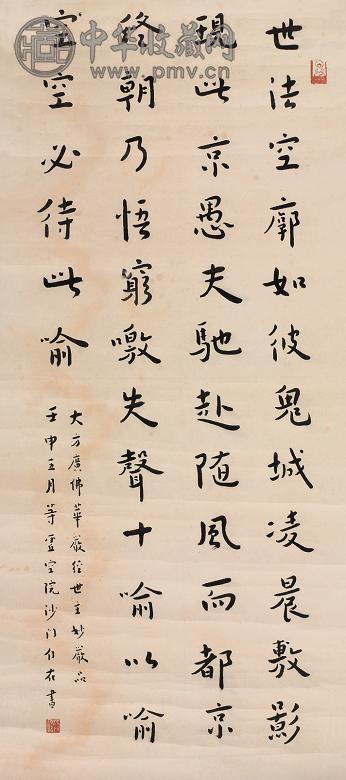 世法空廓如彼鬼城凌晨敷影
現此京愚夫馳赴随風而都京
終朝乃悟窮噭失聲十喻以喻
空空必待此喻
大方廣佛華嚴經世主妙嚴品
壬申月等虚空院沙门書
中华收藏网
www.pmv.cn